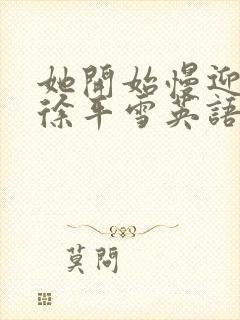 她開始慢迎
徐平雪英語
莫問